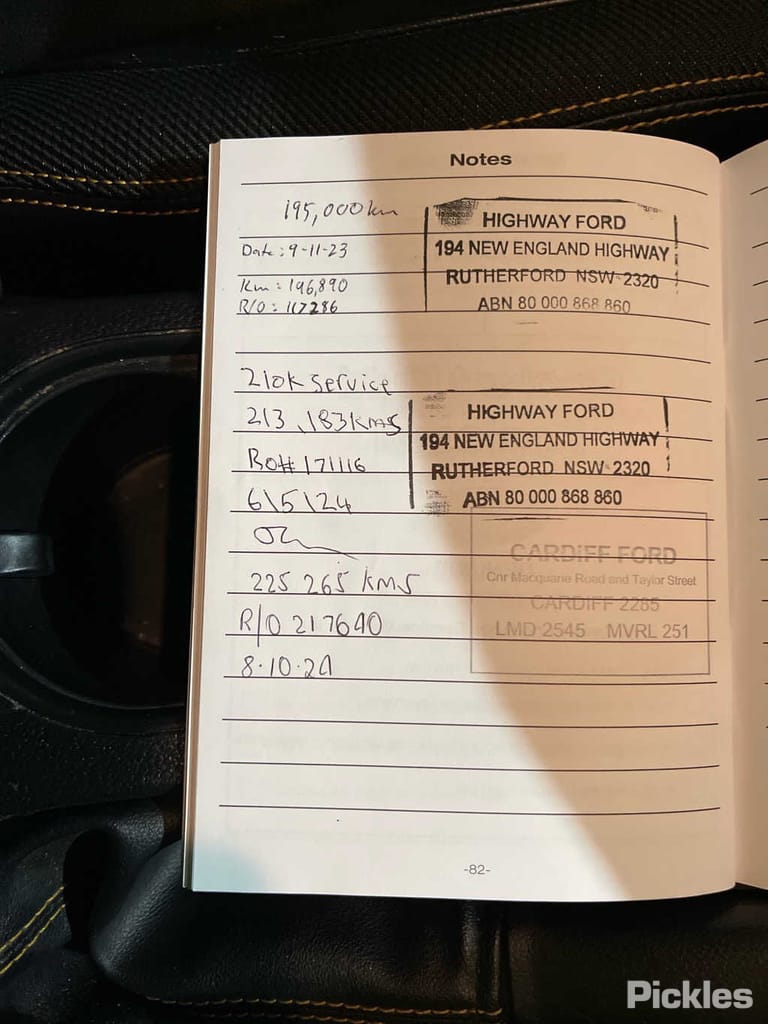 Notes
195,000km
Date: 9-11-23
Km: 196,890
R/O: 117286
HIGHWAY FORD
194 NEW ENGLAND HIGHWAY
RUTHERFORD NSW 2320
ABN 80 000 868 860
210k service
213,183kms
RO# 171116
6\5\24
HIGHWAY FORD
194 NEW ENGLAND HIGHWAY
RUTHERFORD NSW 2320
ABN 80 000 868 860
225 265 kms
R/O 217640
8.10.24
CARDIFF FORD
Cnr Macquarie Road and Taylor Street
CARDIFF 2285
LMD 2545 MVRL 251
-82-
Pickles